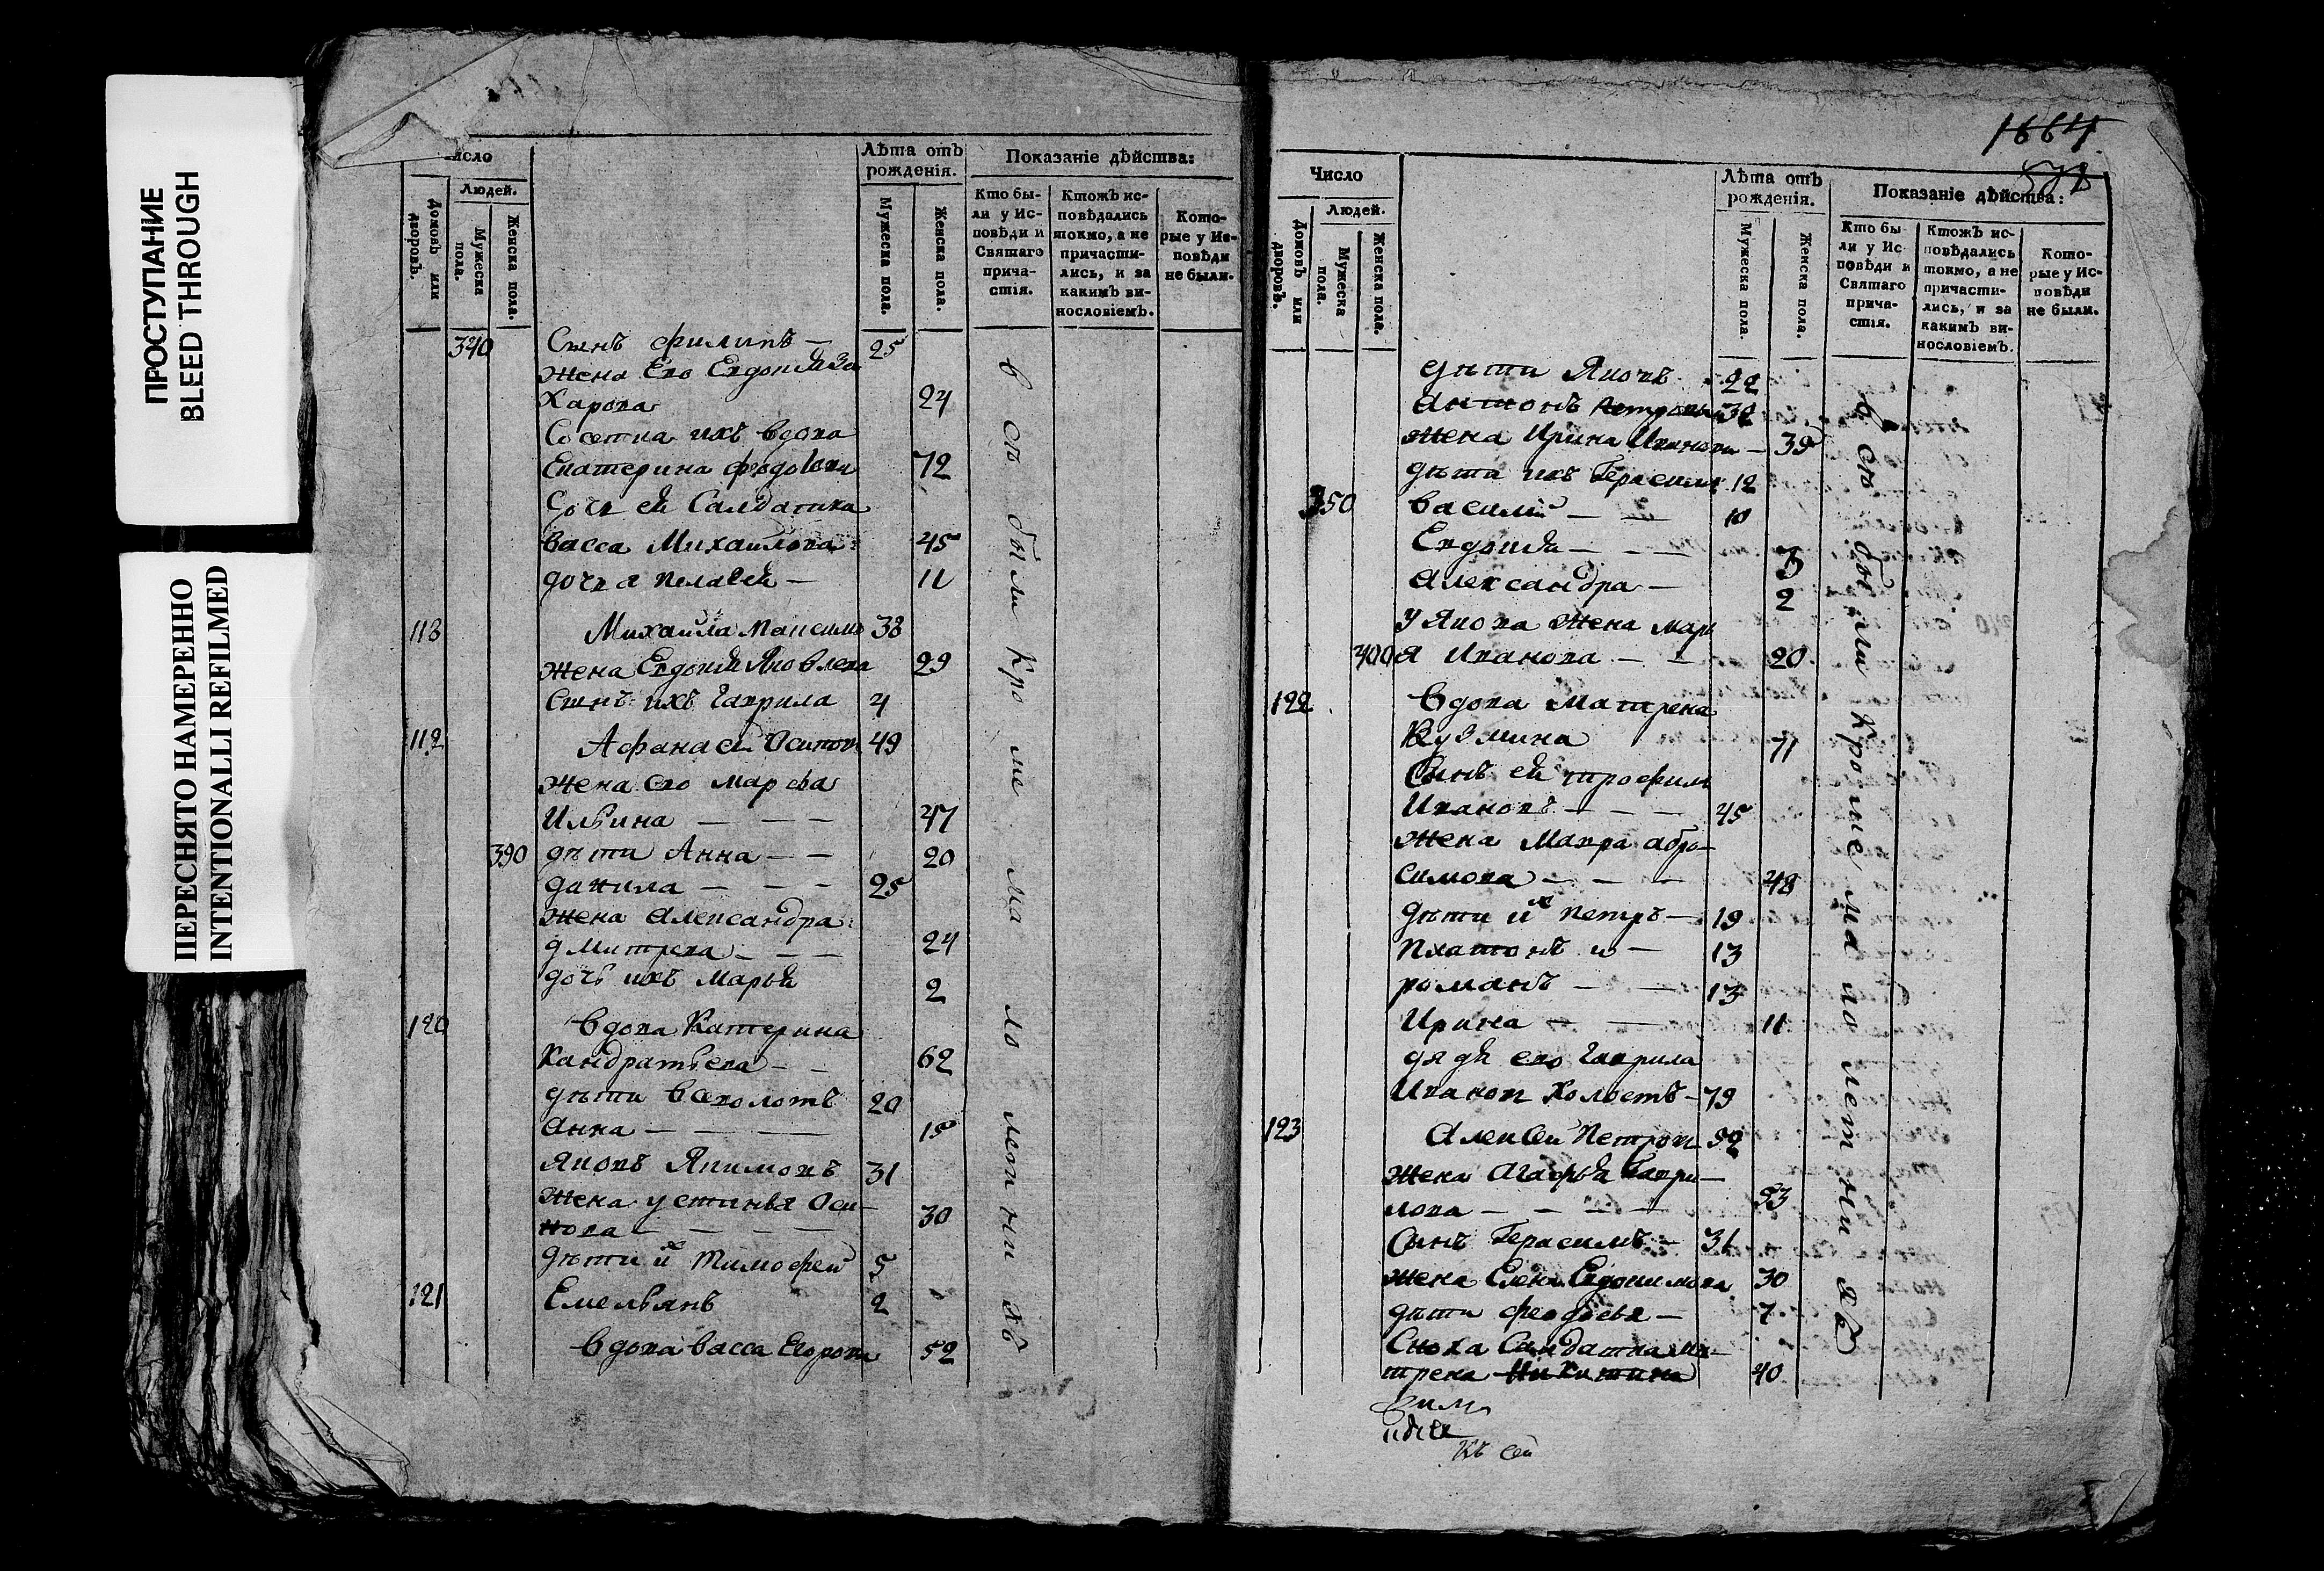 ПРОСТУПАНИЕ
BLEED THROUGH
ПЕРЕСНЯТО НАМЕРЕННО
INTENTIONALLI REFILMED
Число
Людей.
Домовъ или дворовъ.
Мужеска пола.
Женска пола.
Лѣта отъ рожденія.
Мужеска пола.
Женска пола.
Показаніе дѣйства:
Кто были у Исповѣди и Святаго причастія.
Ктожъ исповѣдались токмо, а не причастились, и за какимъ винословіемъ.
Которые у Исповѣди не были.
340 Сынъ филипъ — 25
Жена Его Евдокия За
Харова 24
Сосетка ихъ вдова
Екатерина федо 72
Дочь ей Салдатка
Васса Михаилова 45
дочь а пелагея — 11
118 Михаила Максимо 38
Жена Евдокия Яковлева 29
Сынъ ихъ Гаврила 4
119 Афанасеи Осипов 49
Жена Ево Марфа
Ильина — — — 47
390 дѣти Анна — — 20
данила — — — 25
Жена Александра
дмитрева — — — 24
дочь ихъ Марья 2
120 вдова Катерина
Кандратьева — — 62
дѣти 20
Анна — — — 15
Яковъ Якимовъ 31
Жена устинья Оси-
пова — — — — 30
дѣти их Тимофеи 5
121 Емельянъ 2
вдова васса Егорова 52
в сѣ были Кро ме ма ло лет ни хъ
1664
Число
Людей.
Домовъ или дворовъ.
Мужеска пола.
Женска пола.
Лѣта отъ рожденія.
Мужеска пола.
Женска пола.
Показаніе дѣйства:
Кто были у Исповѣди и Святаго причастія.
Ктожъ исповѣдались токмо, а не причастились, и за какимъ винословіемъ.
Которые у Исповѣди не были.
дѣти Яковъ 22
Антонъ Петровъ
Жена Ирина Иванова — 39
дѣти ихъ Герасимъ 12
350 Василій — — 10
Евдокия — — —
Александра — 2
у Якова Жена Мар
400 я Иванова — — 20
122 вдова Матрена
Кузмина 71
Сынъ ей трофимъ
Ивановъ — — — 45
Жена Мавра абро-
симова — — — 48
Дѣти их петръ — 19
Платонъ и — 13
романъ — — 13
Ирина — — 11
дядя ево Гаврила
Иванов Холостъ — 79
123 Алексеи Петров 52
Жена Агафья Гаври-
лова — — — — 53
Сынъ Герасимъ — 31
Жена Елена Евдокимова 30
дѣти федосья — 7
Сноха Салдатка Ма-
трена Никитина 40
въ сѣ были Кро ме ма ло лет ни хъ
Къ сеи